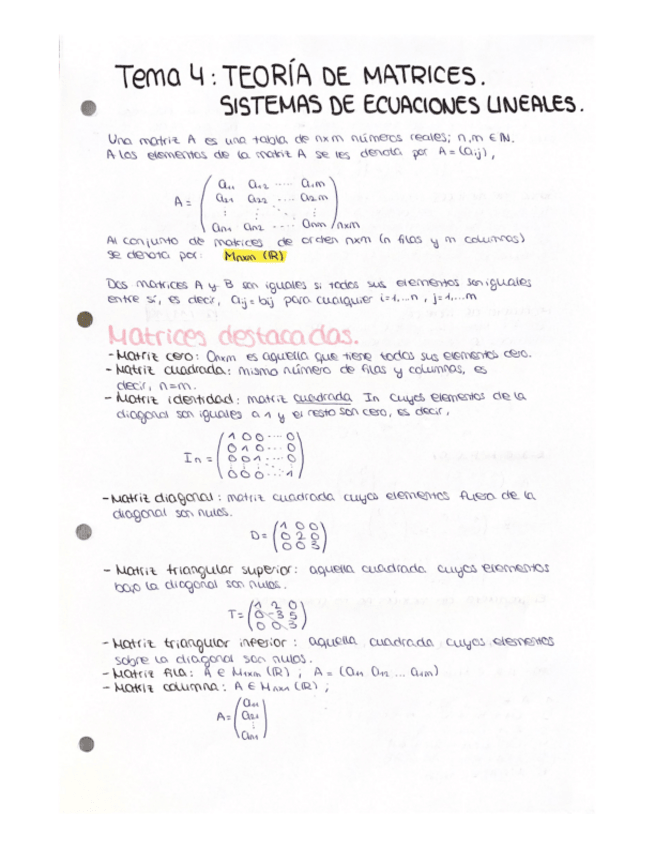 Tema 4: TEORÍA DE MATRICES.
SISTEMAS DE ECUACIONES LINEALES.
Una matriz A es una tabla de nxm números reales; n,m ∈ ℕ.
A los elementos de la matriz A se les denota por A = (aij),
A = ( a11 a12 ..... a1m
a21 a22 ..... a2m
⋮ ⋮ ⋱ ⋮
an1 an2 ..... anm ) nxm
Al conjunto de matrices de orden nxm (n filas y m columnas)
se denota por: Mnxm (ℝ)
Dos matrices A y B son iguales si todos sus elementos son iguales
entre sí, es decir, aij = bij para cualquier i=1,...n , j=1,...m
Matrices destacadas.
- Matriz cero: Onxm es aquella que tiene todos sus elementos cero.
- Matriz cuadrada: mismo número de filas y columnas, es
decir, n=m.
- Matriz identidad: matriz cuadrada In cuyos elementos de la
diagonal son iguales a 1 y el resto son cero, es decir,
In = ( 1 0 0 ... 0
0 1 0 ... 0
0 0 1 ... 0
0 0 0 ... 1 )
- Matriz diagonal: matriz cuadrada cuyos elementos fuera de la
diagonal son nulos.
D = ( 1 0 0
0 2 0
0 0 3 )
- Matriz triangular superior: aquella cuadrada cuyos elementos
bajo la diagonal son nulos.
T = ( 1 2 0
0 3 5
0 0 3 )
- Matriz triangular inferior: aquella cuadrada cuyos elementos
sobre la diagonal son nulos.
- Matriz fila: A ∈ M1xm (ℝ) ; A = (a11 a12 ... a1m)
- Matriz columna: A ∈ Mnx1 (ℝ) ;
A = ( a11
a21
⋮
an1 )